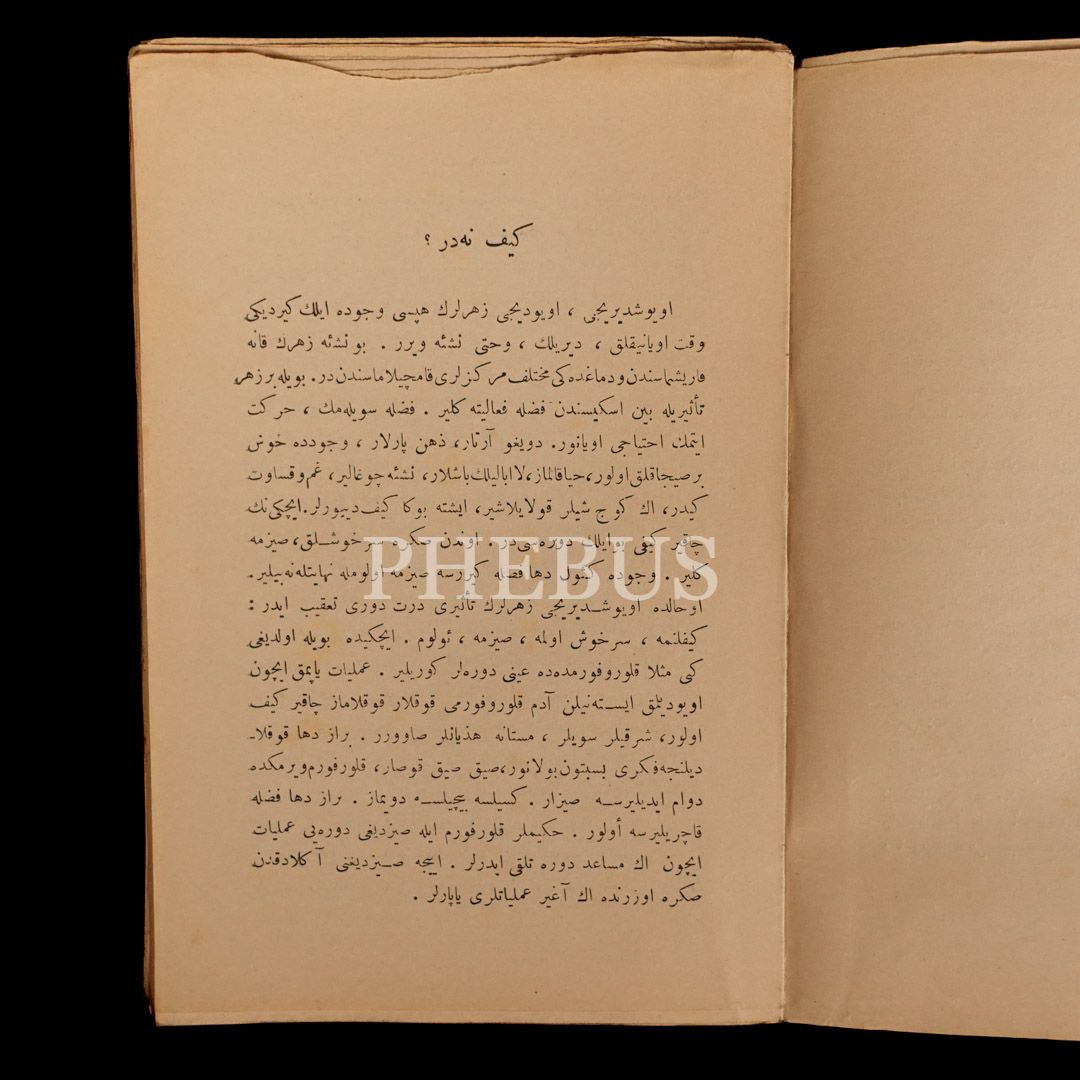 كیف نه‌در ؟
اویوشدیریجی ، اویودیجی زهرلرك هپسی وجوده ایلك كیردیكی
وقت اویانیقلق ، دیریلك ، وحتی نشئه ویرر . بو نشئه زهرك قانه
قاریشماسندن و دماغده‌كی مختلف مركزلری قامچیلاماسندن در. بویله بر زهر
تأثیریله بین اسكیسندن فضله فعالیته كلیر . فضله سویله‌مك ، حركت
ایتمك احتیاجی اویانور. دویغو آرتار، ذهن پارلار ، وجودده خوش
بر صیجاقلق اولور، حیا قالماز، لاابالیلك باشلار، نشئه چوغالیر، غم و قساوت
كیدر، اك كوج شیلر قولایلاشیر، ایشته بوكا كیف دییورلر. ایچكی نك
چاقیر كیفی بو ایلك دوره‌سی در . اوندن صكره سرخوشلق، صیزمه
كلیر . وجوده كئول دها فضله كیررسه صیزمه اولومله نهایتله‌نه‌بیلیر.
اوحالده اویوشدیریجی زهرلرك تأثیری درت دوری تعقیب ایدر :
كیفلنمه ، سرخوش اولمه ، صیزمه ، ئولوم . ایچكیده بویله اولدیغی
كبی مثلا قلوروفورمده‌ده عینی دوره‌لر كوریلیر . عملیات یاپمق ایچون
اویودیلمق ایسته‌نیلن آدم قلوروفورمی قوقلار قوقلاماز چاقیر كیف
اولور، شرقیلر سویلر ، مستانه هذیانلر صاوورر . براز دها قوقلا‌ـ
دیلنجه فكری بسبتون بولانور، صیق صیق قوصار، قلورفورم ویرمكده
دوام ایدیلیرسه صیزار . كسیلسه بیچیلسه دویماز . براز دها فضله
قاچریلیرسه أولور . حكیملر قلورفورم ایله صیزدیغی دوره‌یی عملیات
ایچون اك مساعد دوره تلقی ایدرلر . اییجه صیزدیغنی آكلادقدن
صكره اوزرنده اك آغیر عملیاتلری یاپارلر .
PHEBUS